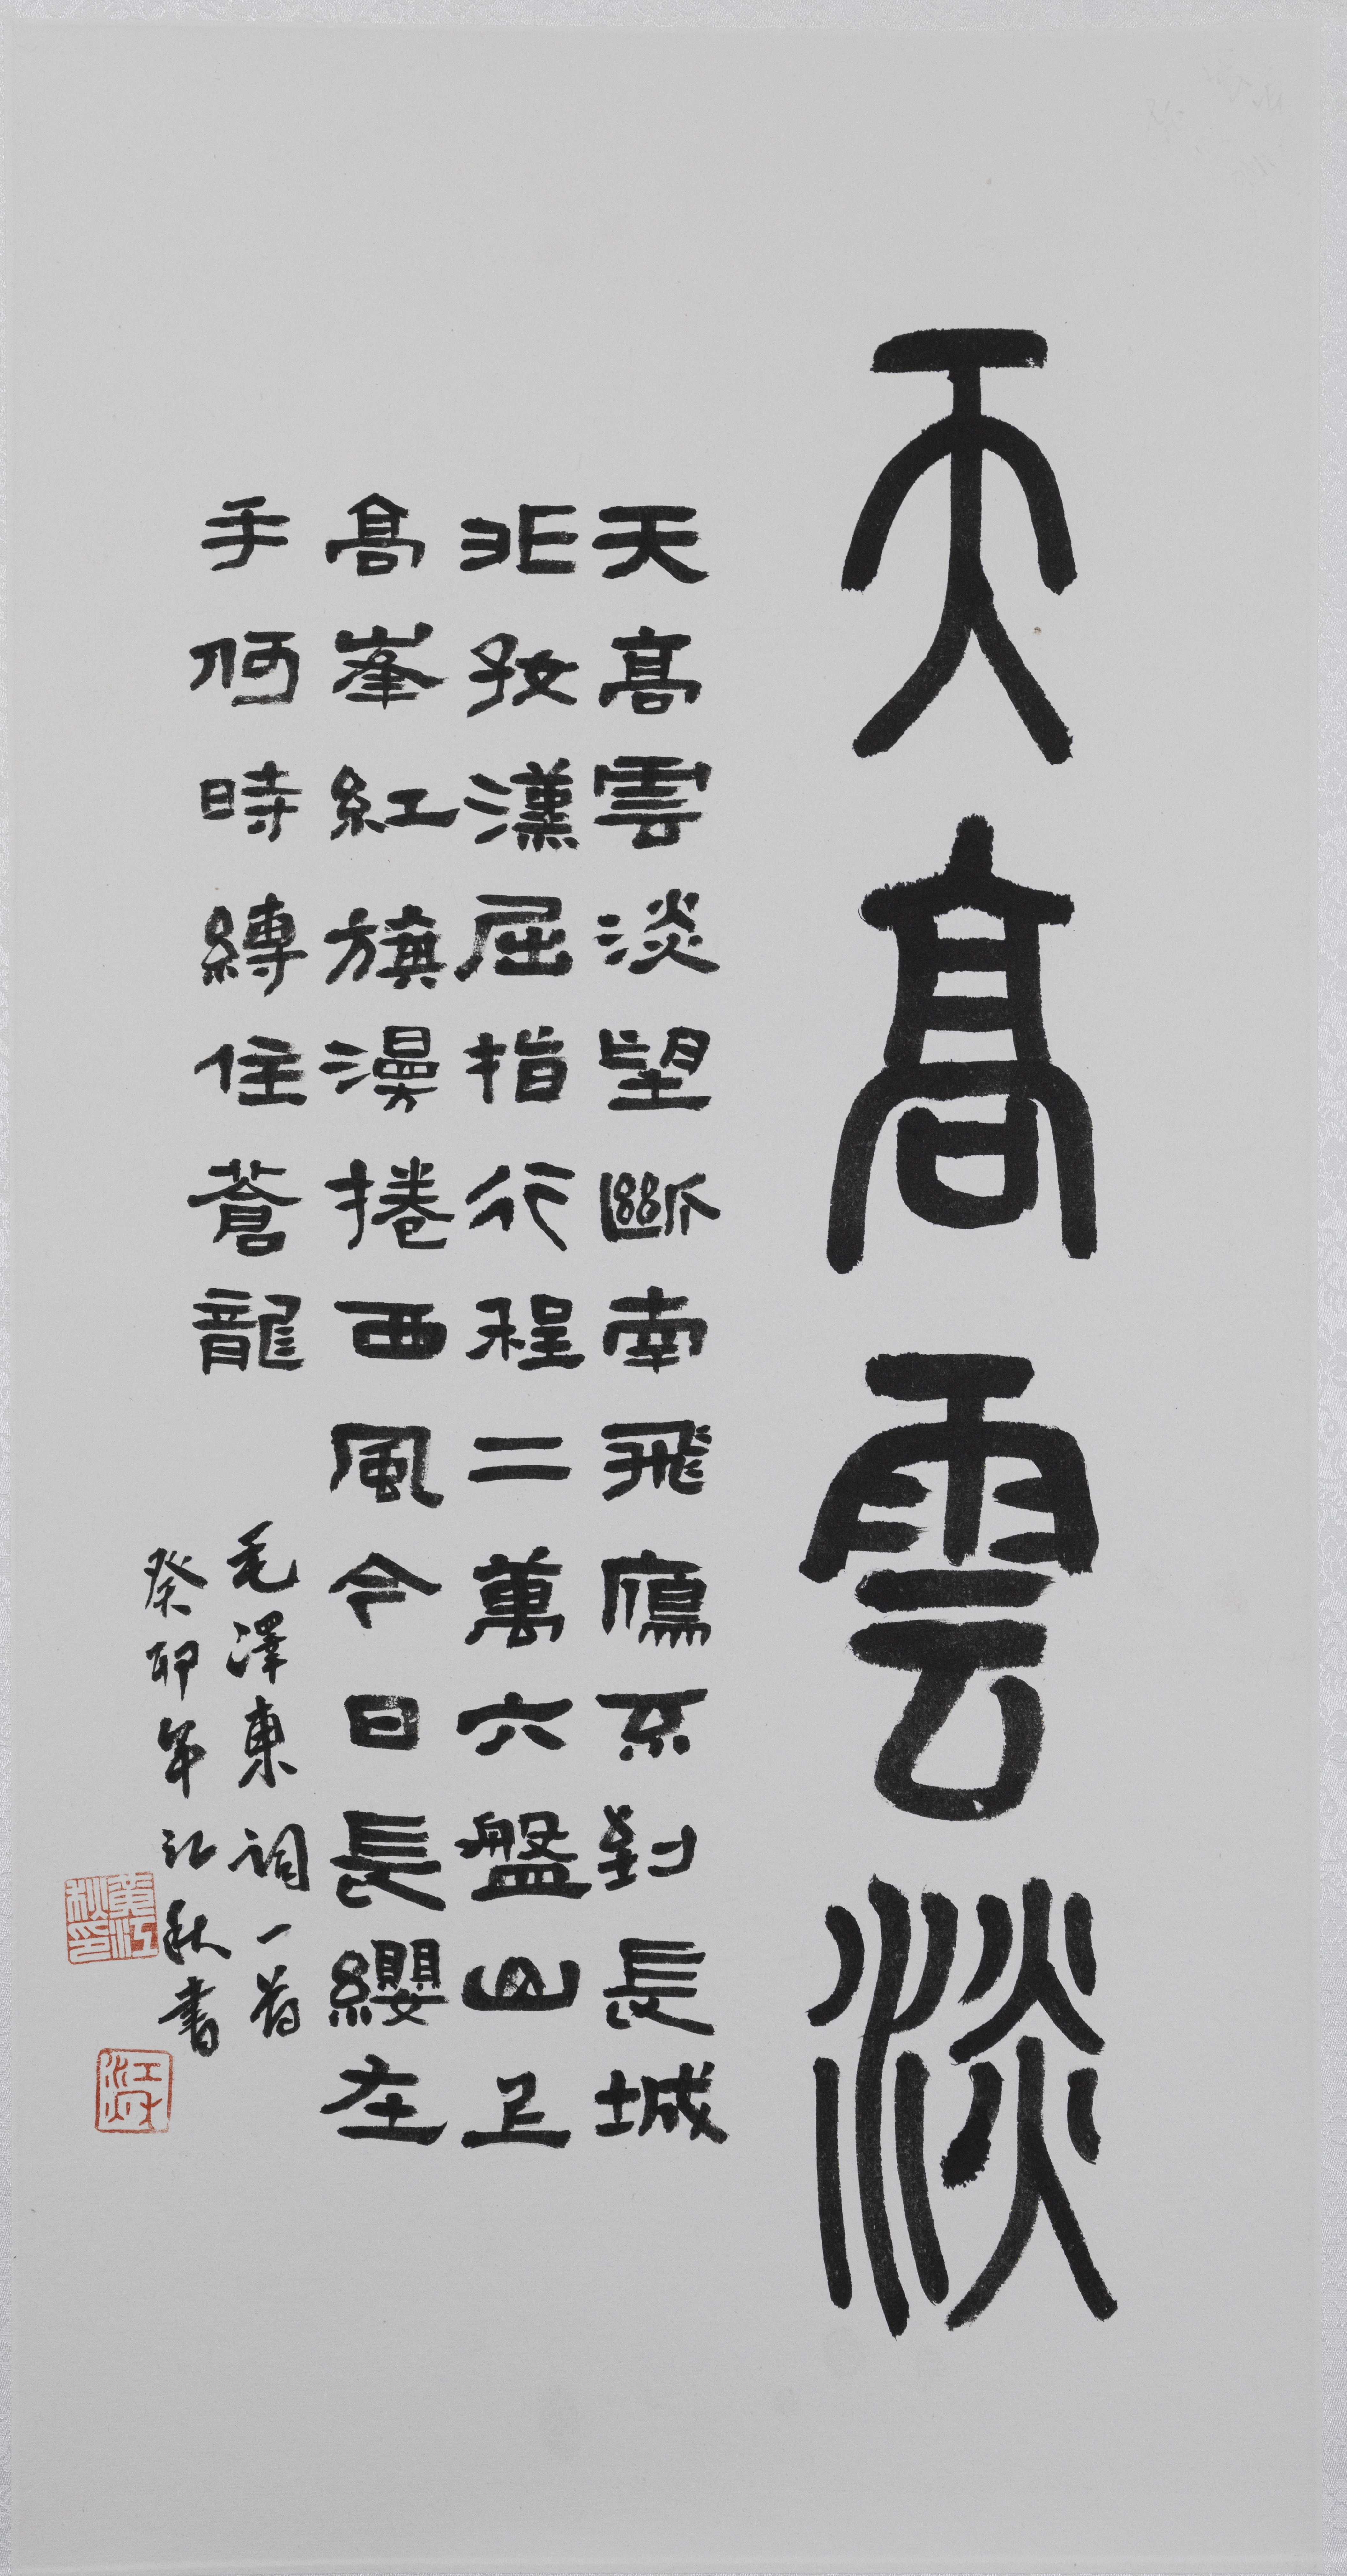 天高雲淡
天高雲淡望斷南飛鴈不到長城
非好漢屈指行程二萬六盤山上
高峯紅旗漫捲西風今日長纓在
手何時縛住蒼龍
毛澤東詞一首
癸卯年江秋書
黃江秋印
江秋